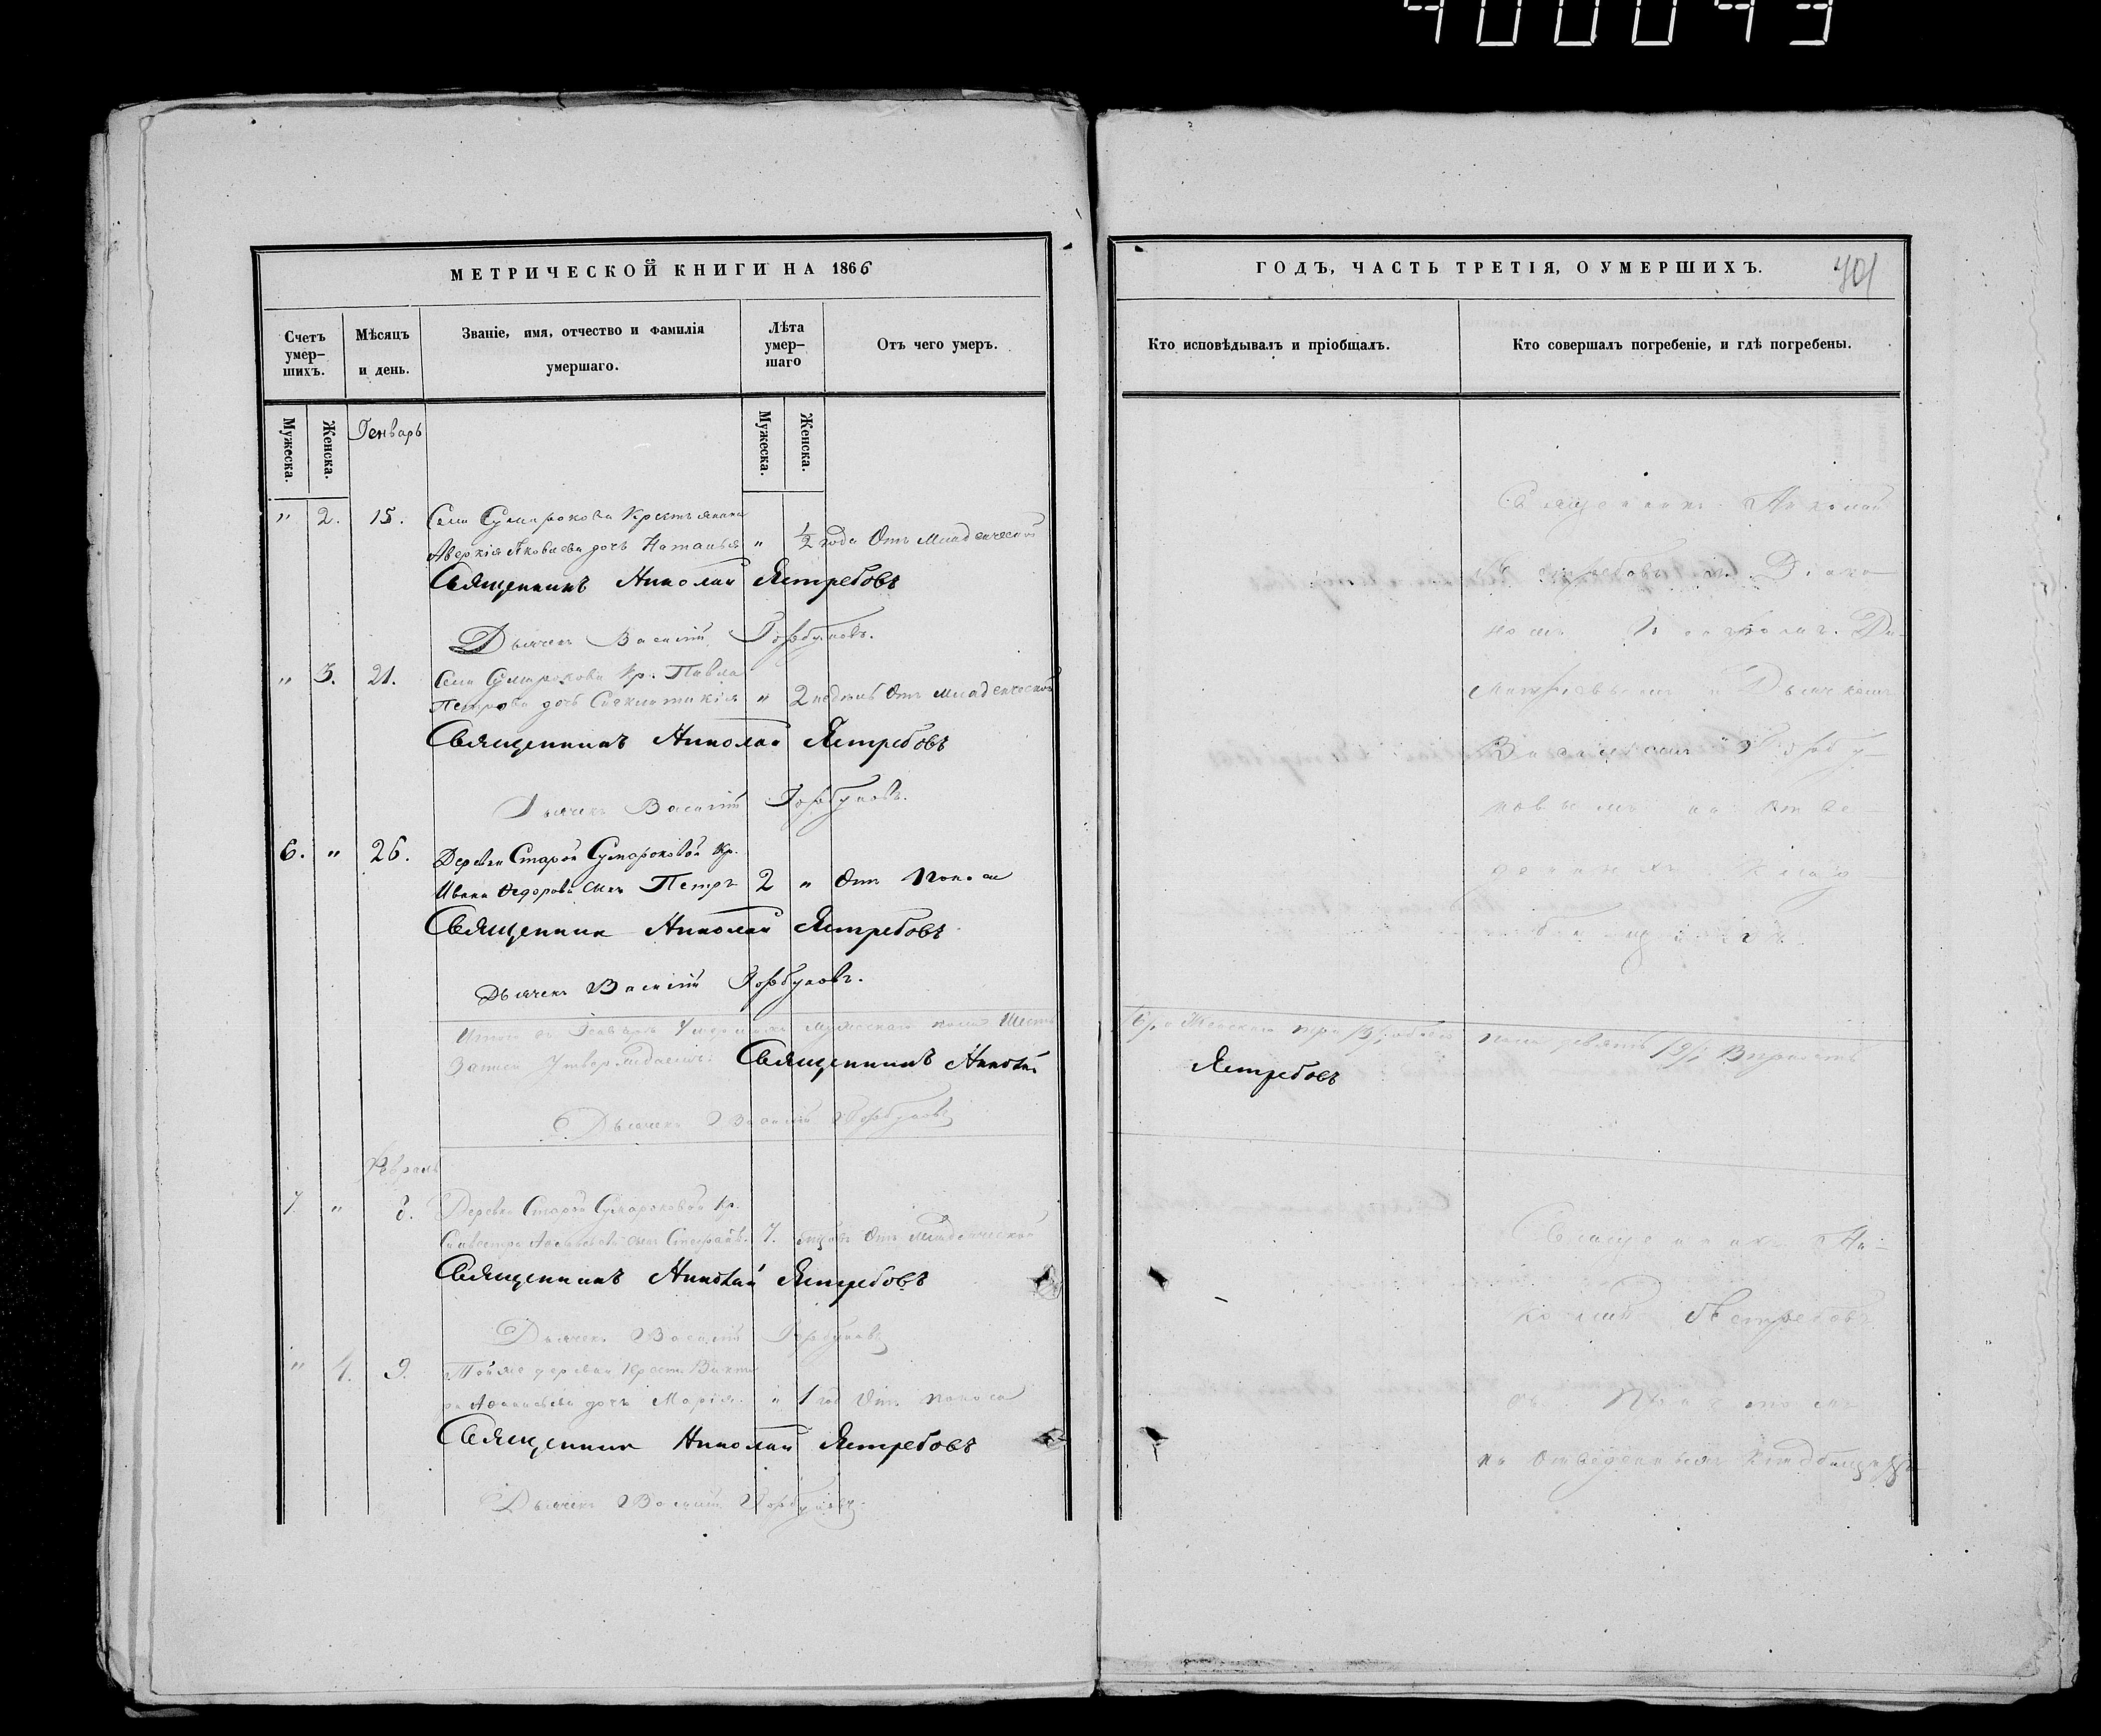 400043
МЕТРИЧЕСКОЙ КНИГИ НА 1866
Счетъ умер-шихъ.
Мѣсяцъ и день.
Званіе, имя, отчество и фамилія умершаго.
Лѣта умер-шаго
Отъ чего умеръ.
Мужеска.
Женска.
Генварь
Мужеска.
Женска.
" 2. 15. Села Сумарокова Крестьянина
Аверкія Яковлева дочь Наталья " 1/2 года Отъ Младенческой
Священникъ Николай Ястребовъ
Дьячекъ Василій Горбуновъ.
" 3. 21. Села Сумарокова Кр. Павла
Петрова дочь Синклитикія " 2 недѣль Отъ младенческой
Священникъ Николай Ястребовъ
Дьячекъ Василій Горбуновъ.
6. " 26. Деревни Старой Сумароковой Кр.
Ивана Ѳедорова сынъ Петръ 2 " Отъ поноса
Священникъ Николай Ястребовъ
Дьячекъ Василій Горбуновъ.
Итого въ Генварѣ Умершихъ мужескаго пола Шесть
Записи Утверждаемъ: Священникъ Николай
Дьячекъ Василій Горбуновъ
Февраль
7. " 8. Деревни Старой Сумароковой Кр.
сынъ 7. Отъ младенческой
Священникъ Николай Ястребовъ
Дьячекъ Василій Горбуновъ
" 4. 9. Тойже деревни Викто
ра Аѳанасьева дочь Марія. " 1 год Отъ поноса
Священник Николай Ястребовъ
Дьячекъ Василій Горбуновъ.
ГОДЪ, ЧАСТЬ ТРЕТІЯ, О УМЕРШИХЪ.
401
Кто исповѣдывалъ и пріобщалъ.
Кто совершалъ погребеніе, и гдѣ погребены.
Священникъ Николай
Ястребовъ съ Діако-
номъ Ди-
митріевымъ и Дьячкомъ
Василіемъ Горбу-
новымъ на отве-
денномъ клад-
бищѣ.
/6/ а Женскаго три /3/ обоего пола девять /9/
Ястребовъ
Священникъ Ни-
колай Ястребовъ
съ Причтомъ
на отведенномъ кладбищѣ